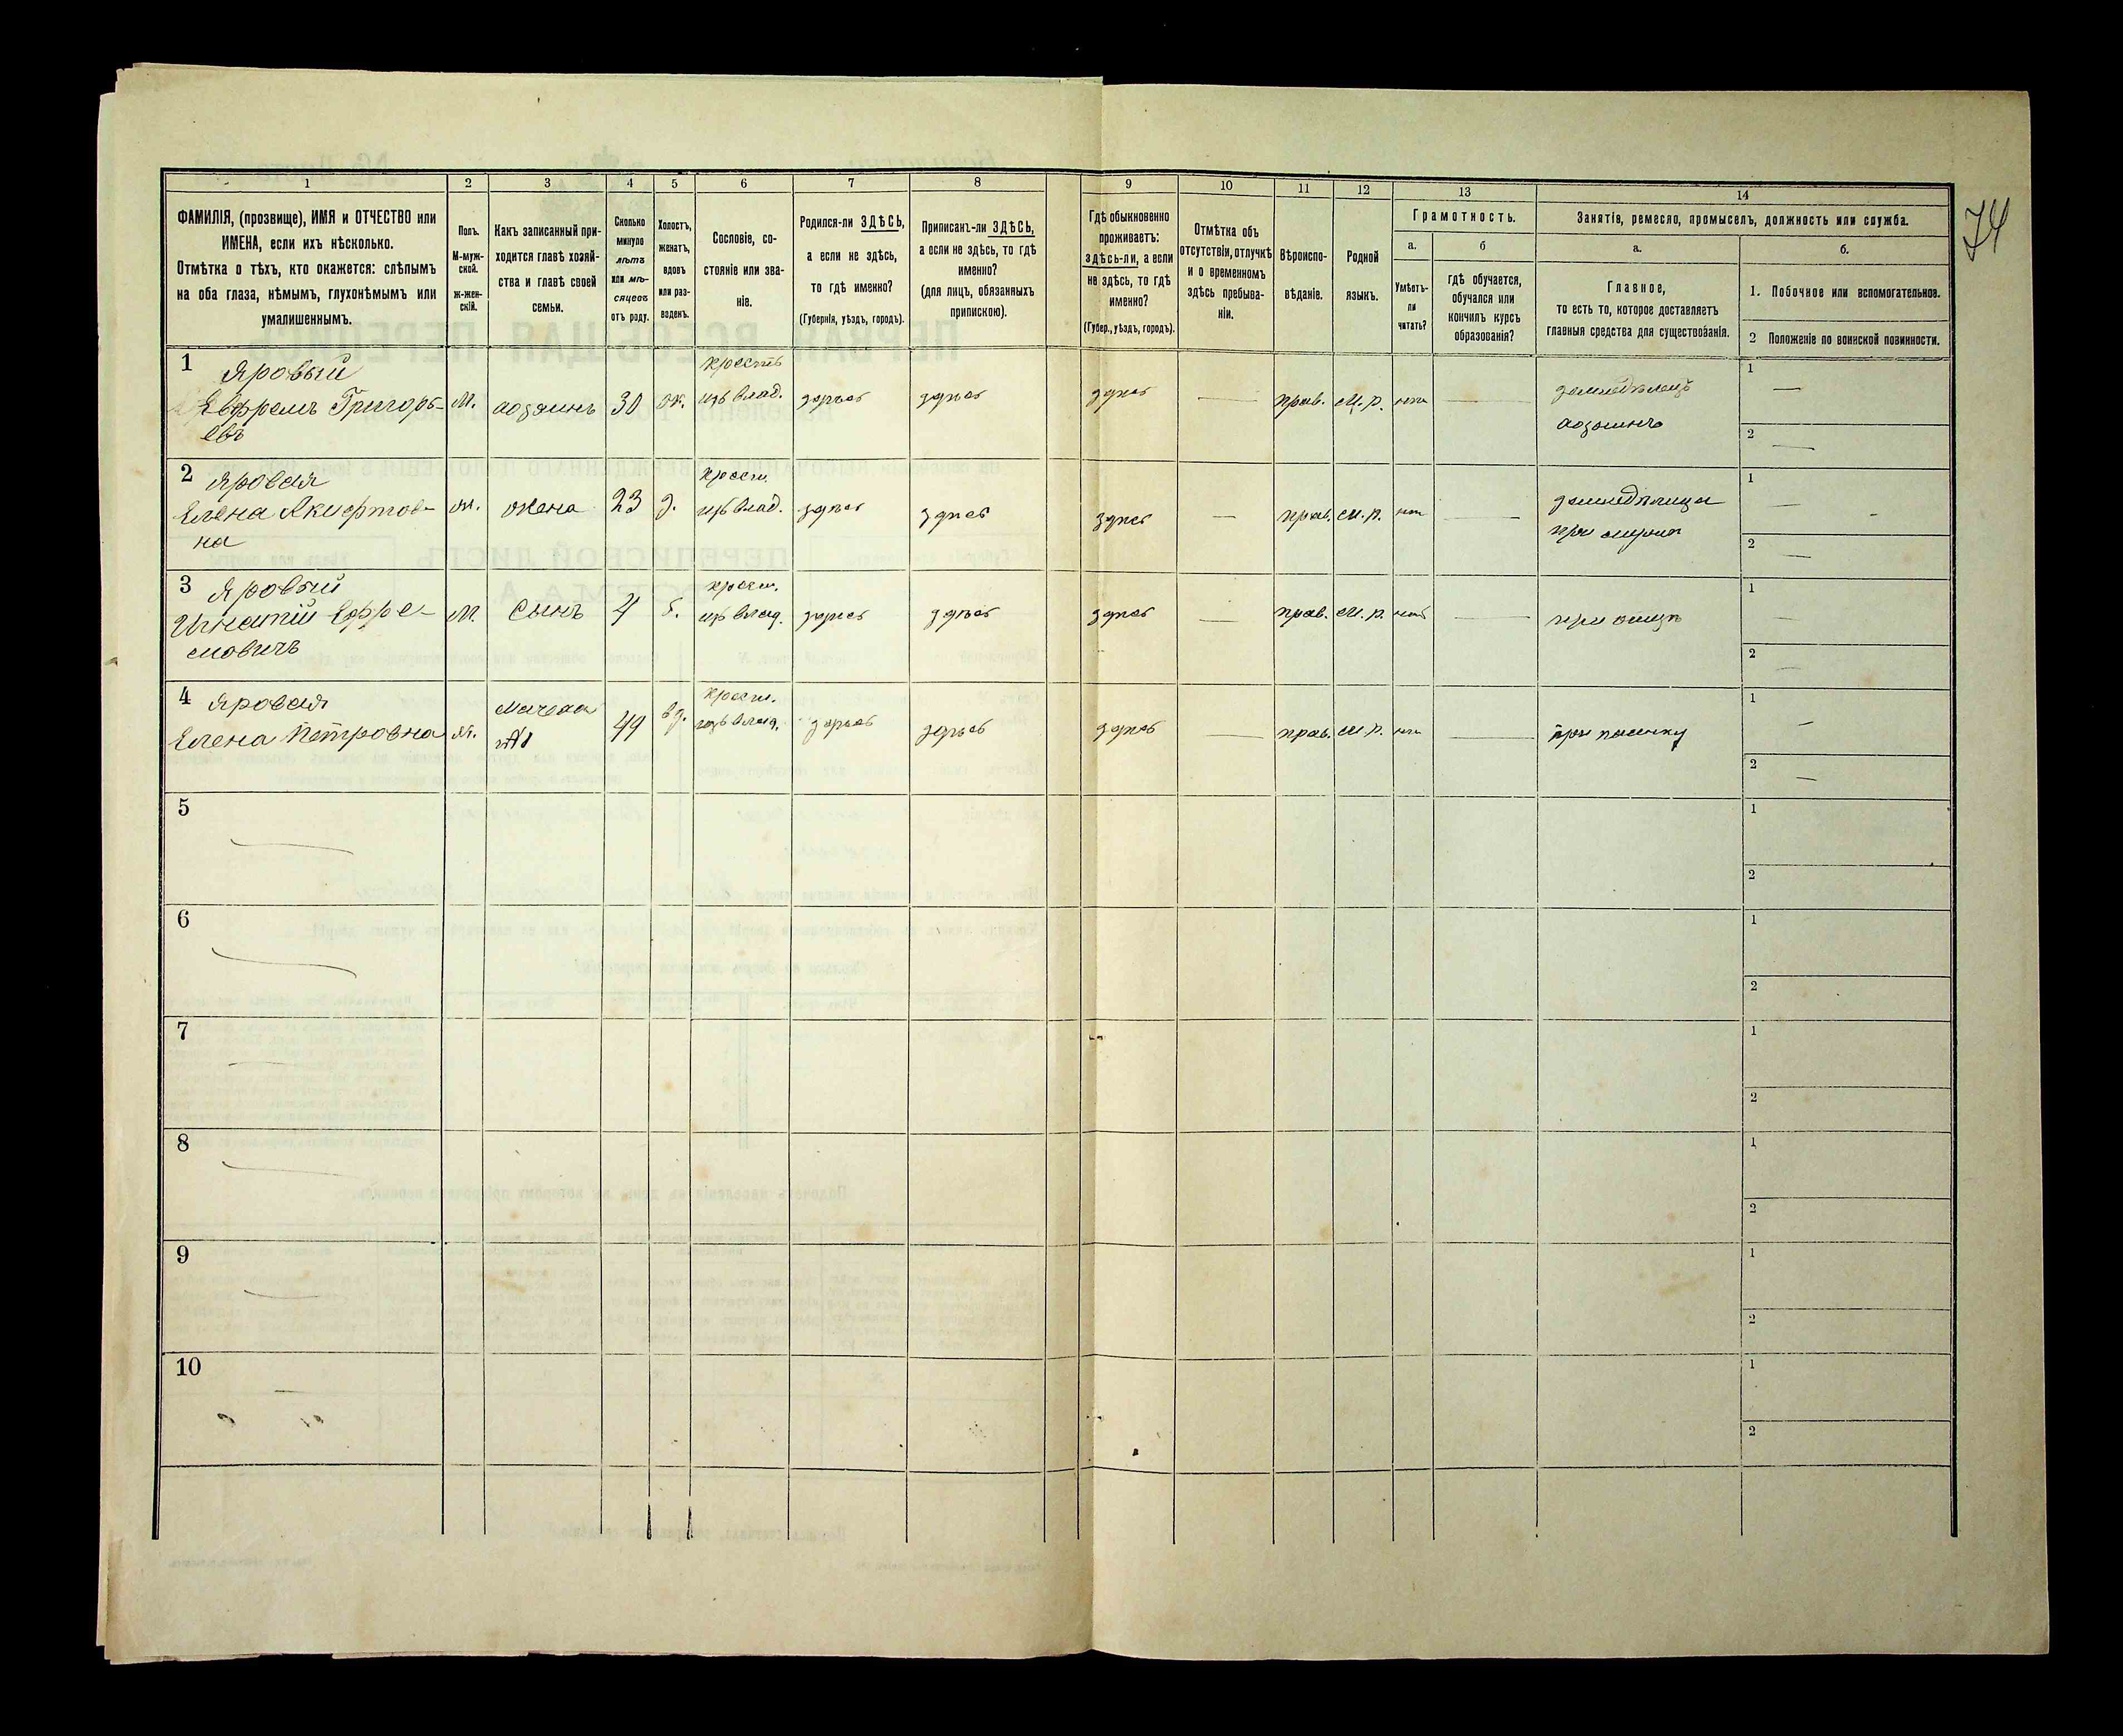 74
1 2 3 4 5 6 7 8 9 10 11 12 13 14
ФАМИЛІЯ, (прозвище), ИМЯ и ОТЧЕСТВО или
ИМЕНА, если ихъ нѣсколько.
Отмѣтка о тѣхъ, кто окажется: слѣпымъ
на оба глаза, нѣмымъ, глухонѣмымъ или
умалишеннымъ.
Полъ.
М-муж-
ской.
ж-жен-
скій.
Какъ записанный при-
ходится главѣ хозяй-
ства и главѣ своей
семьи.
Сколько
минуло
лѣтъ
или мѣ-
сяцевъ
отъ роду.
Холостъ,
женатъ,
вдовъ
или раз-
веденъ.
Сословіе, со-
стояніе или зва-
ніе.
Родился-ли ЗДѢСЬ,
а если не здѣсь,
то гдѣ именно?
(Губернія, уѣздъ, городъ).
Приписанъ-ли ЗДѢСЬ,
а если не здѣсь, то гдѣ
именно?
(для лицъ, обязанныхъ
припискою).
Гдѣ обыкновенно
проживаетъ:
здѣсь-ли, а если
не здѣсь, то гдѣ
именно?
(Губер., уѣздъ, городъ).
Отмѣтка объ
отсутствіи, отлучкѣ
и о временномъ
здѣсь пребыва-
ніи.
Вѣроиспо-
вѣданіе.
Родной
языкъ.
Грамотность.
а.
Умѣетъ-
ли
читать?
б
гдѣ обучается,
обучался или
кончилъ курсъ
образованія?
Занятія, ремесло, промыселъ, должность или служба.
а.
Главное,
то есть то, которое доставляетъ
главныя средства для существованія.
б.
1. Побочное или вспомогательное.
2 Положеніе по воинской повинности.
1 Яровый
Ефремъ Григорь-
евъ
М. хозяинъ 30 ж.
крестъ
изъ влад. здѣсь здѣсь здѣсь — прав. м.р. нѣтъ —
земледѣлецъ
хозяинъ
1 —
2 —
2 Яровая
Елена
на
жена 23 з.
крест.
изъ влад. здѣсь здѣсь здѣсь — прав. м.р. нѣтъ —
при мужѣ
1 —
2 —
3 Яровый
Игнатій Ефре-
мовичъ
М. Сынъ 4
крест.
изъ влад. здѣсь здѣсь здѣсь — прав. м.р. нѣтъ —
при отцѣ
1 —
2 —
4 Яровая
Елена Петровна
Мачеха
49 вд.
крест.
изъ влад. здѣсь здѣсь здѣсь — прав. м.р. нѣтъ —
при пасынку
1 —
2 —
5 —
1
2
6 —
1
2
7 —
1
2
8 —
1
2
9 —
1
2
10 —
1
2